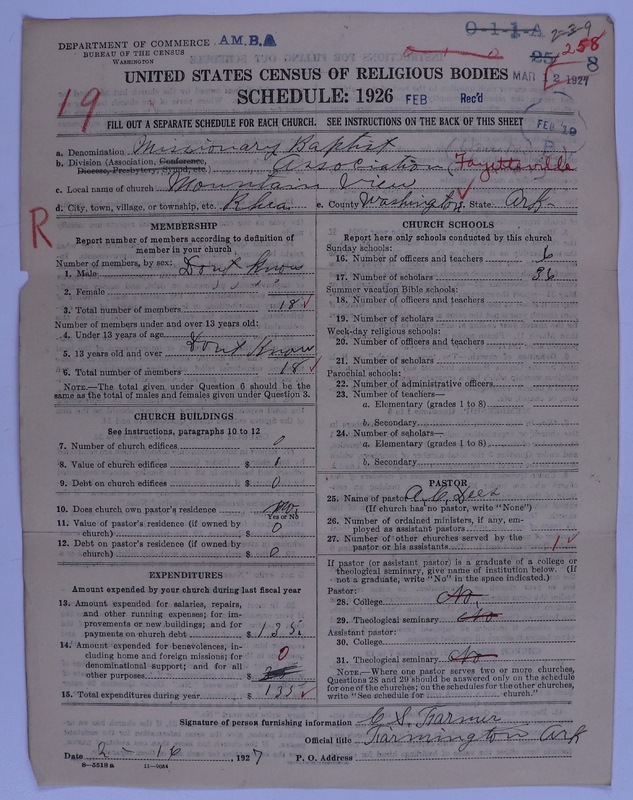 DEPARTMENT OF COMMERCE A.M.B.A
BUREAU OF THE CENSUS
WASHINGTON
0-1-1-A 2-2-9
258
8
UNITED STATES CENSUS OF RELIGIOUS BODIES
MAR 2 1927
SCHEDULE: 1926 FEB Rec'd
19
FILL OUT A SEPARATE SCHEDULE FOR EACH CHURCH. SEE INSTRUCTIONS ON THE BACK OF THIS SHEET
FEB 19
a. Denomination Missionary Baptist
b. Division (Association, Conference, Diocese, Presbytery, Synod, etc.) Association (Fayetteville
c. Local name of church Mountain View
d. City, town, village, or township, etc. Rhea e. County Washington f. State Ark
R
MEMBERSHIP
Report number of members according to definition of member in your church
Number of members, by sex:
1. Male Dont Know
2. Female " "
3. Total number of members 18
Number of members under and over 13 years old:
4. Under 13 years of age
5. 13 years old and over Dont Know
6. Total number of members 18
NOTE.—The total given under Question 6 should be the same as the total of males and females given under Question 3.
CHURCH BUILDINGS
See instructions, paragraphs 10 to 12
7. Number of church edifices 0
8. Value of church edifices $
9. Debt on church edifices $ 0
10. Does church own pastor's residence No
Yes or No
11. Value of pastor's residence (if owned by church) $ 0
12. Debt on pastor's residence (if owned by church) $ 0
EXPENDITURES
Amount expended by your church during last fiscal year
13. Amount expended for salaries, repairs, and other running expenses; for improvements or new buildings; and for payments on church debt $ 135.
14. Amount expended for benevolences, including home and foreign missions; for denominational support; and for all other purposes $ 0
15. Total expenditures during year $ 135
CHURCH SCHOOLS
Report here only schools conducted by this church
Sunday schools:
16. Number of officers and teachers 6
17. Number of scholars 36
Summer vacation Bible schools:
18. Number of officers and teachers
19. Number of scholars
Week-day religious schools:
20. Number of officers and teachers
21. Number of scholars
Parochial schools:
22. Number of administrative officers
23. Number of teachers—
a. Elementary (grades 1 to 8)
b. Secondary
24. Number of scholars—
a. Elementary (grades 1 to 8)
b. Secondary
PASTOR
25. Name of pastor
(If church has no pastor, write "None")
26. Number of ordained ministers, if any, employed as assistant pastors
27. Number of other churches served by the pastor or his assistants 1
If pastor (or assistant pastor) is a graduate of a college or theological seminary, give name of institution below. (If not a graduate, write "No" in the space indicated.)
Pastor:
28. College No
29. Theological seminary No
Assistant pastor:
30. College
31. Theological seminary No
NOTE.—Where one pastor serves two or more churches, Questions 28 and 29 should be answered only on the schedule for one of the churches; on the schedules for the other churches, write "See schedule for church."
Signature of person furnishing information C. S. Farmer
Official title Farmington Ark
Date 2 - 16, 1927 P. O. Address
8-5518a 11-9034